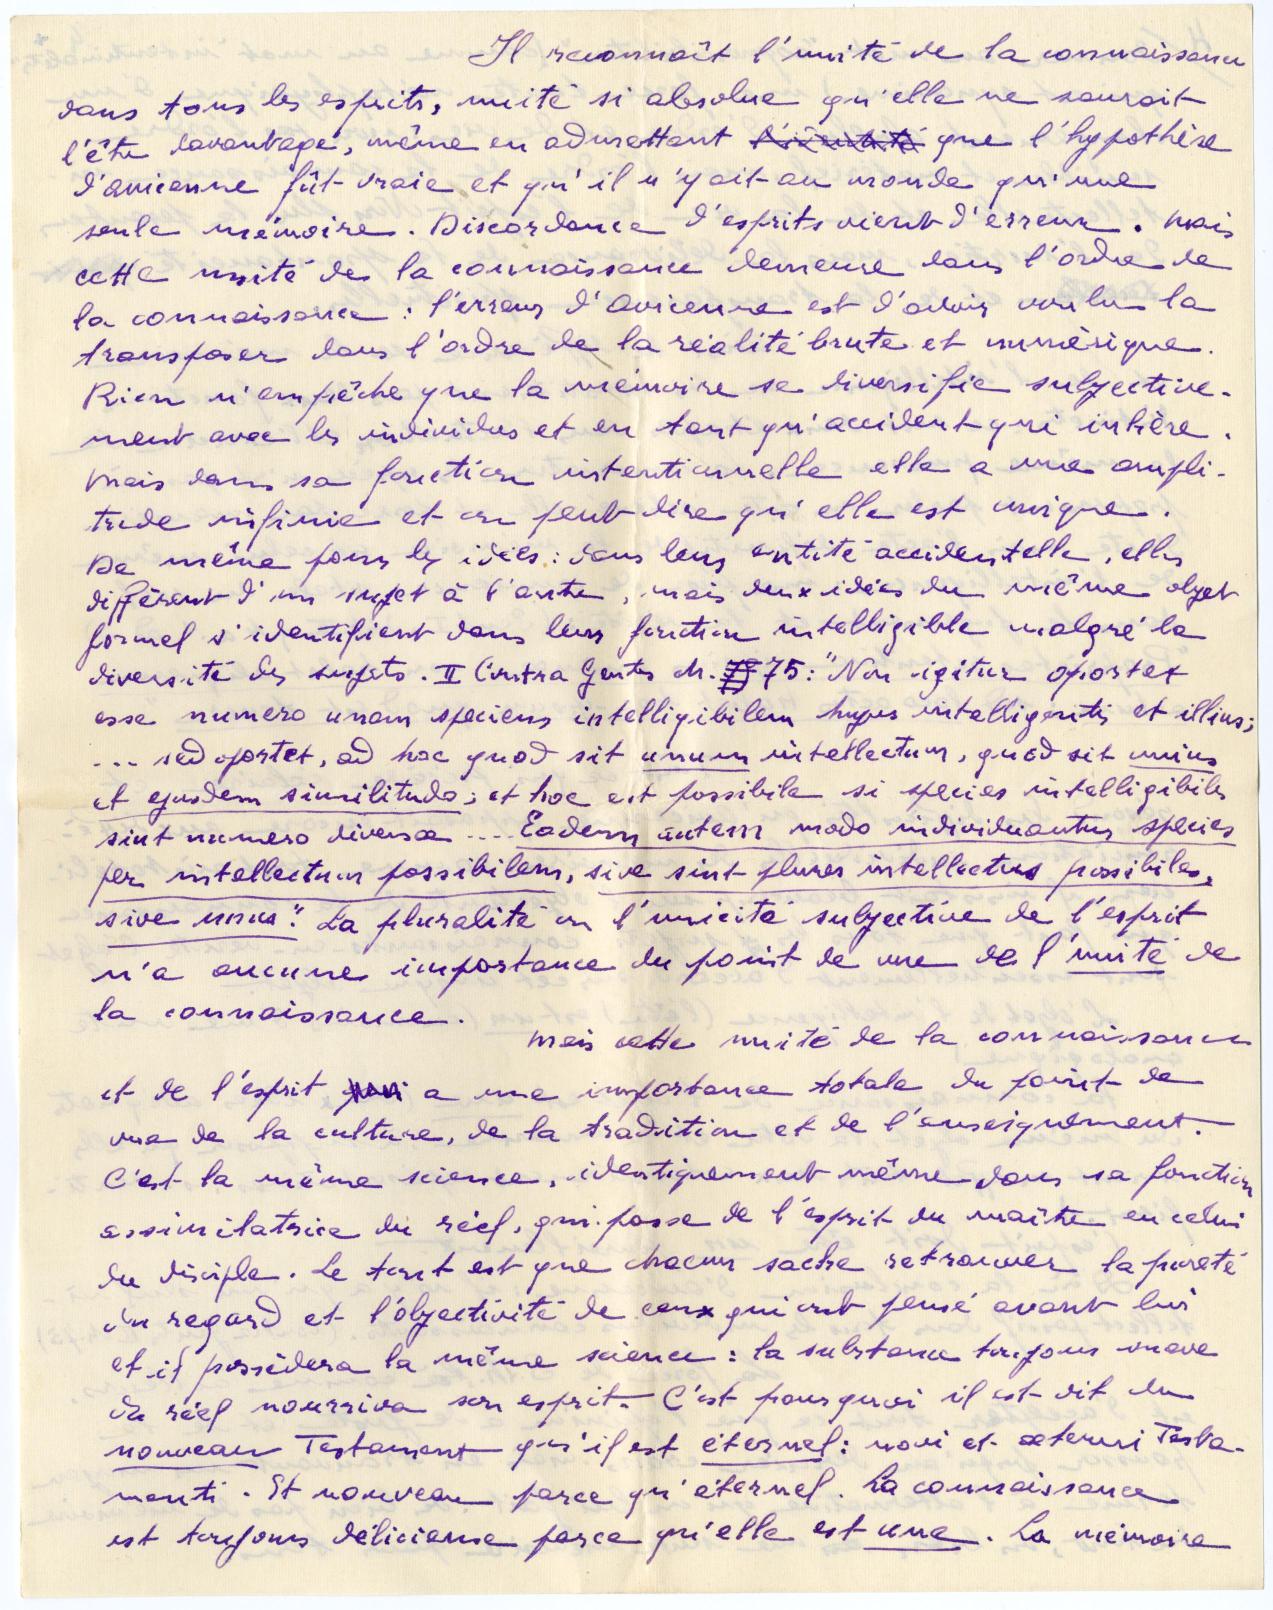 Il reconnaît l'unité de la connaissance
dans tous les esprits, unité si absolue qu'elle ne saurait
l'être davantage, même en admettant que l'hypothèse
d'avicenne fût vraie et qu'il n'y ait au monde qu'une
seule mémoire. Discordance d'esprits vient d'erreur. Mais
cette unité de la connaissance demeure dans l'ordre de
la connaissance : l'erreur d'avicenne est d'avoir voulu la
transposer dans l'ordre de la réalité brute et numérique.
Rien n'empêche que la mémoire se diversifie subjective-
ment avec les individus et en tant qu'accident qui inhère.
Mais dans sa fonction intentionnelle elle a une ampli-
tude infinie et on peut dire qu'elle est unique.
De même pour les idées : dans leur entité accidentelle, elles
diffèrent d'un sujet à l'autre, mais deux idées du même objet
formel s'identifient dans leur fonction intelligible malgré la
diversité des sujets. II Contra Gentes ch. 75 : "Non igitur oportet
esse numero unam speciem intelligibilem hujus intelligentis et illius;
... sed oportet, ad hoc quod sit unum intellectum, quod sit unius
et ejusdem similitudo; et hoc est possibile si species intelligibiles
sint numero diversæ .... Eadem autem modo individuantur species
per intellectum possibilem, sive sint plures intellectus possibiles,
sive unus". La pluralité ou l'unicité subjective de l'esprit
n'a aucune importance du point de vue de l'unité de
la connaissance.
Mais cette unité de la connaissance
et de l'esprit a une importance totale du point de
vue de la culture, de la tradition et de l'enseignement.
C'est la même science, identiquement même dans sa fonction
assimilatrice du réel, qui passe de l'esprit du maître en celui
du disciple. Le tout est que chacun sache retrouver la pureté
du regard et l'objectivité de ceux qui ont pensé avant lui
et il possédera la même science : la substance toujours neuve
du réel nourrira son esprit. C'est pourquoi il est dit du
nouveau Testament qu'il est éternel : novi et æterni Testa-
menti. Et nouveau parce qu'éternel. La connaissance
est toujours délicieuse parce qu'elle est une. La mémoire